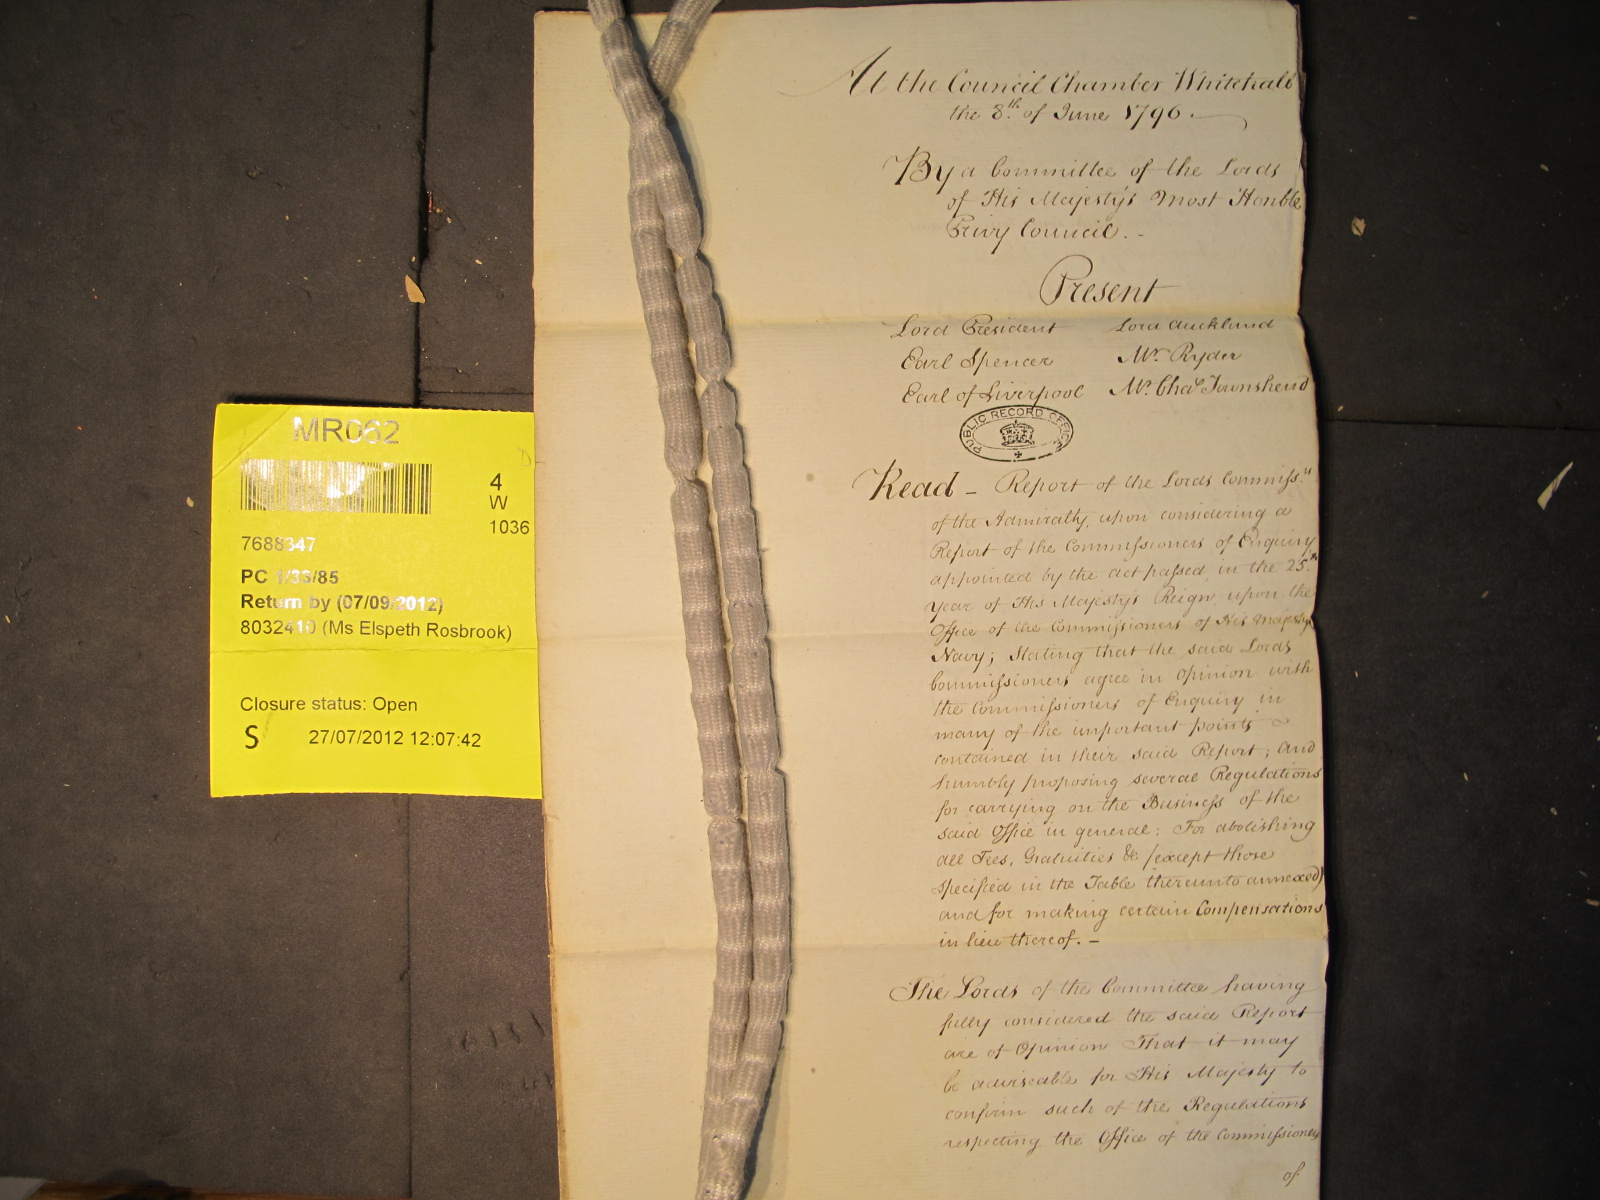 MR062
4
W
1036
7688347
PC 1/33/85
Return by (07/09/2012)
8032410 (Ms Elspeth Rosbrook)
Closure status: Open
S 27/07/2012 12:07:42
At the Council Chamber Whitehall
the 8th of June 1796.
By a Committee of the Lords
of His Majesty's most Honble
Privy Council. -
Present
Lord President Lord Auckland
Earl Spencer Mr Ryder
Earl of Liverpool Mr Chas Townshend
PUBLIC RECORD OFFICE
Read - Report of the Lords Commissrs
of the Admiralty, upon considering a
Report of the Commissioners of Enquiry
appointed by the act passed in the 25th
year of His Majesty's Reign upon the
Office of the Commissioners of His Majestys
Navy; Stating that the said Lords
Commissioners agree in Opinion with
the Commissioners of Enquiry in
many of the important points
contained in their said Report; and
humbly proposing several Regulations
for carrying on the Business of the
said Office in general; For abolishing
all Fees, Gratuities &c (except those
specified in the Table thereunto annexed)
and for making certain Compensations
in lieu thereof. -
The Lords of the Committee having
fully considered the said Report
are of Opinion That it may
be adviseable for His Majesty to
confirm such of the Regulations
respecting the Office of the Commissioners
of